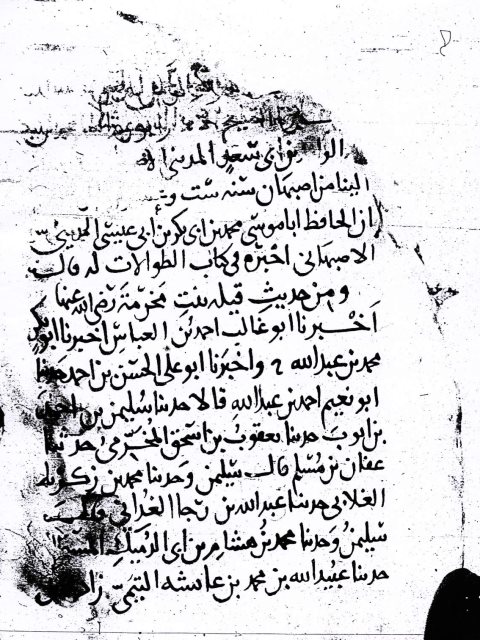 الينا من اصبهان سنه ست و
ان الحافظ ابا موسى محمد بن ابى بكر بن ابى عيسى المديني
الاصبهانى اخبره فى كتاب الطوالات له قال
ومن حديث قيله بنت مخرمة رضى الله عنها
اخبرنا ابو غالب احمد بن العباس اخبرنا ابو بكر
محمد بن عبد الله ح واخبرنا ابو على الحسن بن احمد حدثنا
ابو نعيم احمد بن عبد الله قالا حدثنا سليمن بن احمد
بن ايوب حدثنا يعقوب بن اسحق المخرمى حدثنا
عفان بن مسلم قال سليمن وحدثنا محمد بن زكريا
الغلابى حدثنا عبد الله بن رجا الغدانى قال
سليمن وحدثنا محمد بن هشام بن ابى الدميك
حدثنا عبيد الله بن محمد بن عائشه التيمى